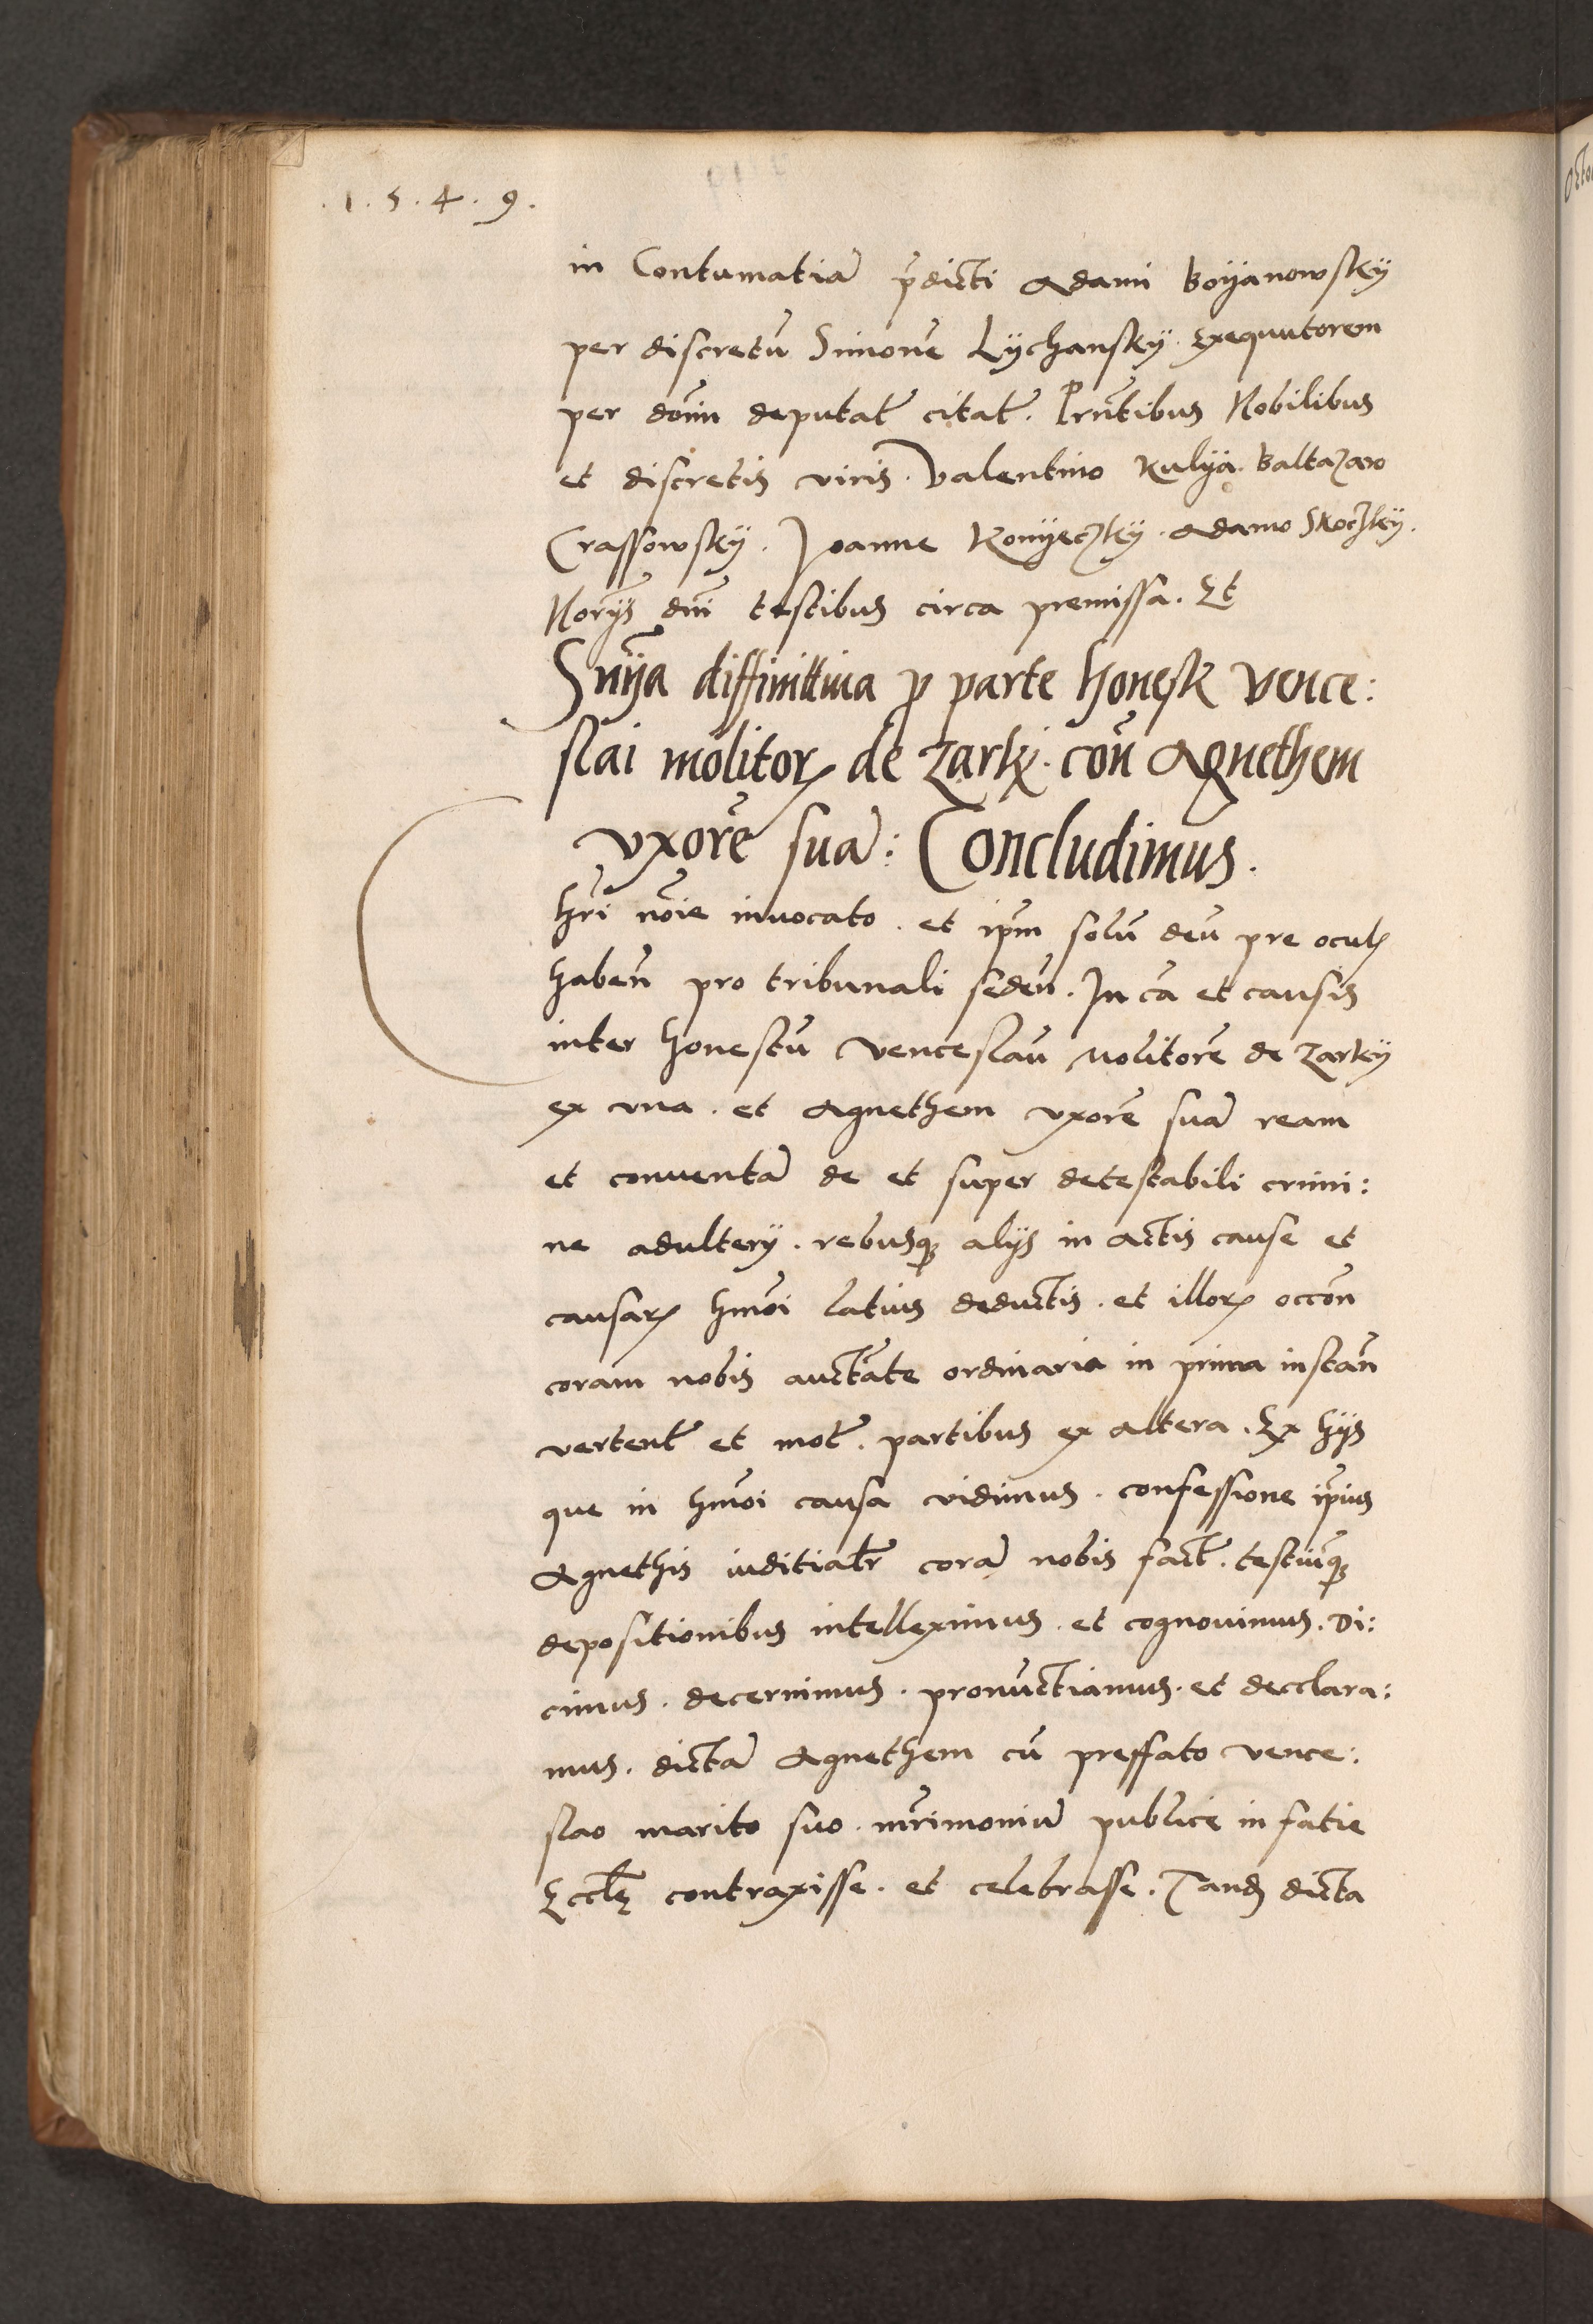 .1.5.4.9.
in Contumatiā p̄dicti Adami Boyanowsky
per discretū Simonē Lychansky. Exequutorem
per dōm̄ deputat̄ citat̄. Prn̄tibus Nobilibus
et discretis viris. Valentino Kulya. Baltazaro
Crassowsky. Joanne Konyeczky. Adamo Skoczky.
Norȳs dn̄i testibus circa premissa. Et
Snỹa diffinitiua ꝓ parte honesti Vence:
slai molitorꝭ de Zarky. con̄ Agnethem
vxorē suā: Concludimus.
Chri nōie inuocato. et ip̄m solū deū pre oculꝭ
haben̄ pro tribunali seden̄. In cā et causis
inter honestū Venceslaū Molitorē de Zarky
ex vna. et Agnethem vxorē suā ream
et conuentā de et super detestabili crimi:
ne adultery. rebusqꝫ alys in actis cause et
causarꝝ hm̄oi latius deductis. et illorꝝ occon̄
coram nobis auctāte ordinaria in prima instan̄
vertent̄ et mot̄. partibus ex altera. Ex hys
que in hm̄oi causa vidimus. confessione ip̄ius
Agnethis iuditialr̄ corā nobis fact̄. testiūqꝫ
depositionibus intelleximus. et cognouimus. Di:
cimus. decernimus. pronūctiamus. et decclara:
mus. dictā Agnethem cū preffato Vence:
slao marito suo. mr̄imoniū publice in fatie
Eccl̄ę contraxisse. et celebrasse. Tandꝫ dicta